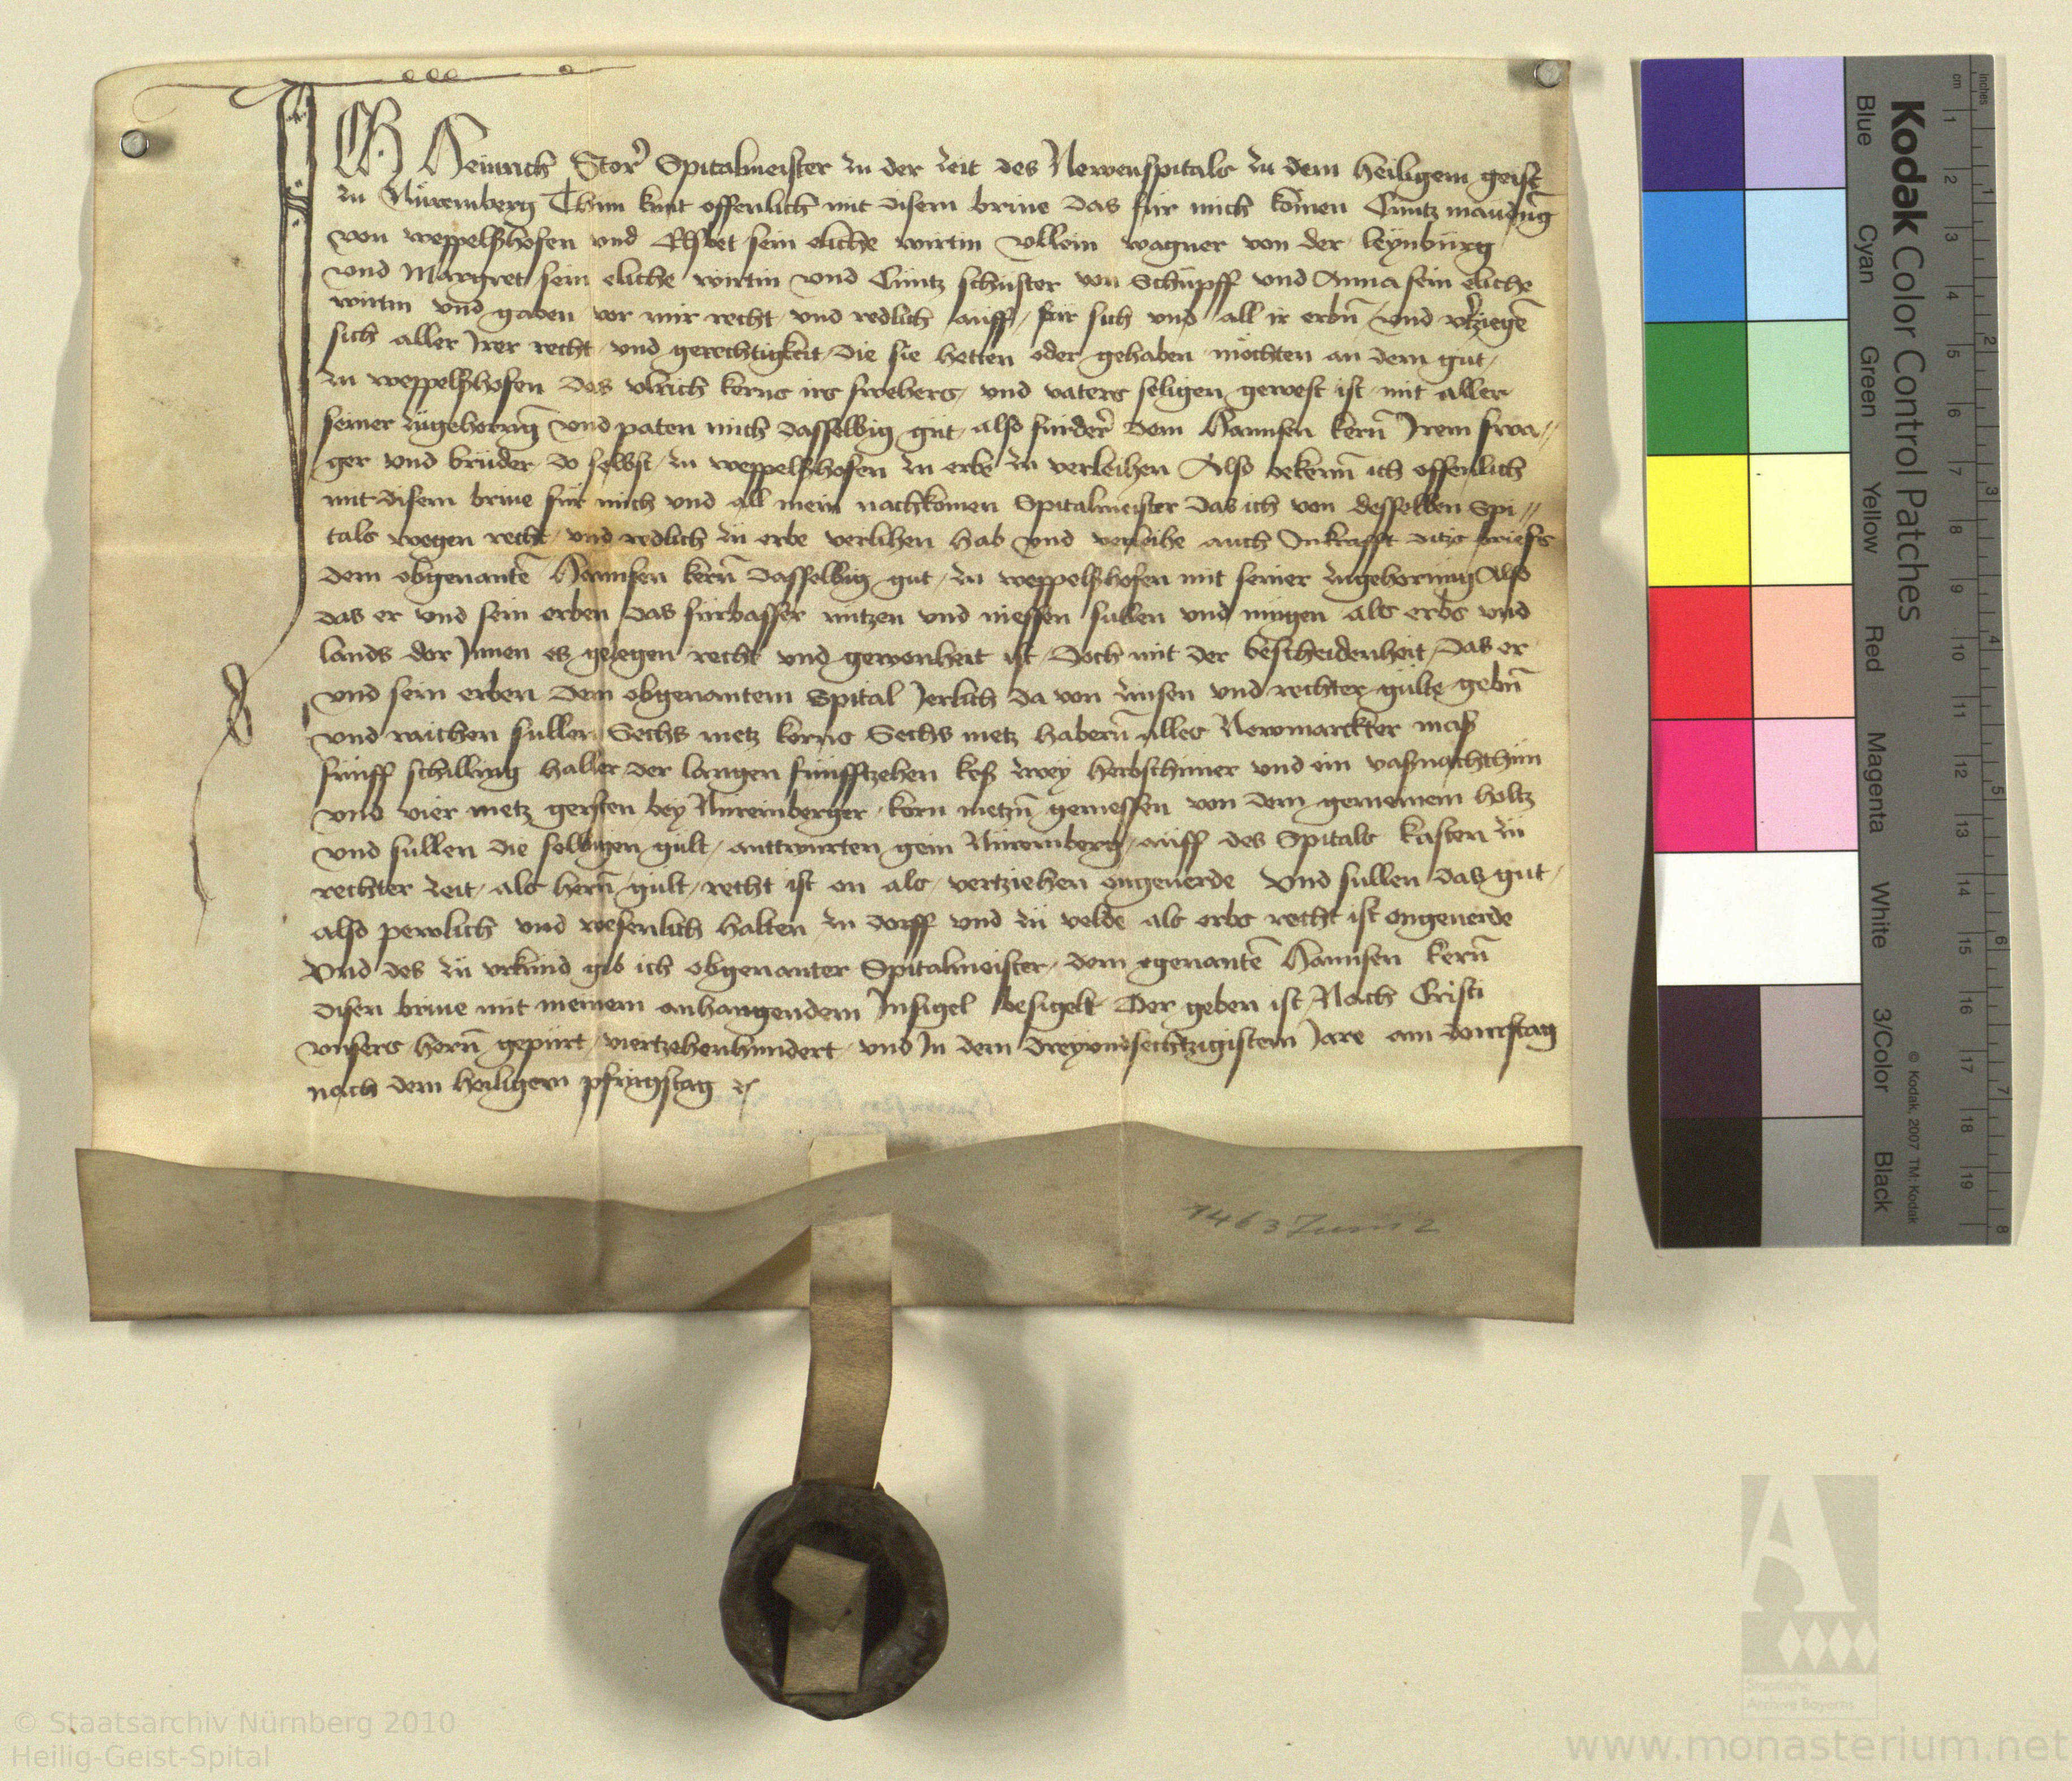 ICH Heinrich Storˀ Spitalmeister zu der zeit des Newenspitals zu dem heiligem geist
zu Nüremberg Thun kunt offenlich mit disem brive das für mich komen Cuntz
von weppelßhofen vnd Elsbet sein eliche wirtin vllein wagner von der leynbürg
vnd Margret sein eliche wirtin vnd Cuntz schuster von Schupff vnd Anna sein eliche
wirtin vnd gaben vor mir recht vnd redlich auff für sich vnd all ir erbn̄ vnd v̄tziegē
sich aller Irer recht vnd gerechtigkeit die sie hetten oder gehaben möchten an dem gut
zu weppelßhofen das vlrich kerns irs swehers vnd vaters seligen gewest ist mit aller
seiner zugehorūg vnd paten mich dasselbig gut also fürder dem Hannsen kern̄ Irem swa//
ger vnd bruder do selbst zu weppelßhofen zu erbe zu verleihen Also bekenn̄ ich offenlich
mit disem brive für mich vnd all mein nachkomen Spitalmeister das ich von desselben Spi//
tals wegen recht vnd redlich zu erbe verlihen hab vnd verleihe auch Inkrafft ditz briefs
dem obgenantē Hannsen kern̄ dasselbig gut zu weppelßhofen mit seiner zugehorung Also
das er vnd sein erben das fürbasser nutzen vnd niessen sullen vnd mügen als erbs vnd
lands dor Innen es gelegen recht vnd gewonheit ist Doch mit der bescheidenheit Das er
vnd sein erben dem obgenantem Spital Jerlich da von zinsen vnd rechter gülte gebn̄
vnd raichen sullen Sechs metz korns Sechs metz habern̄ alles Newmarckter maß
fünff schilling haller der langen fünfftzehen keß zwey herbsthüner vnd ein vaßnachthün
vnd vier metz gersten bey Nüremberger korn metzn̄ gemessen von dem gemeinem holtz
vnd süllen die selbigen gült anttwurten gein Nüremberg auff des Spitals kasten zu
rechter zeit als hern̄ gült recht ist on als vertziehen ongeuerde Vnd sullen das gut
also pewlich vnd wesenlich halten zu dorff vnd zu velde als erbs recht ist ongeuerde
Vnd des zu vrkund gib ich obgenanter Spitalmeister dem egenantē Hannsen kern̄
disen brive mit meinem anhangendem Insigel besigelt Der geben ist Nach Cristi
vnsers hern̄ gepürt viertzehenhundert vnd In dem dreyvndsechtzigistem Jare am donrstag
nach dem heiligem pfingstag
1463 Juni 2
Kodak Color Control Patches
Blue Cyan Green Yellow Red Magenta White 3/Color Black
© Kodak, 2007 TM: Kodak
inches 1 2 3 4 5 6 7 8
cm 1 2 3 4 5 6 7 8 9 10 11 12 13 14 15 16 17 18 19
Staatliche
Archive Bayerns
© Staatsarchiv Nürnberg 2010
Heilig-Geist-Spital
www.monasterium.net